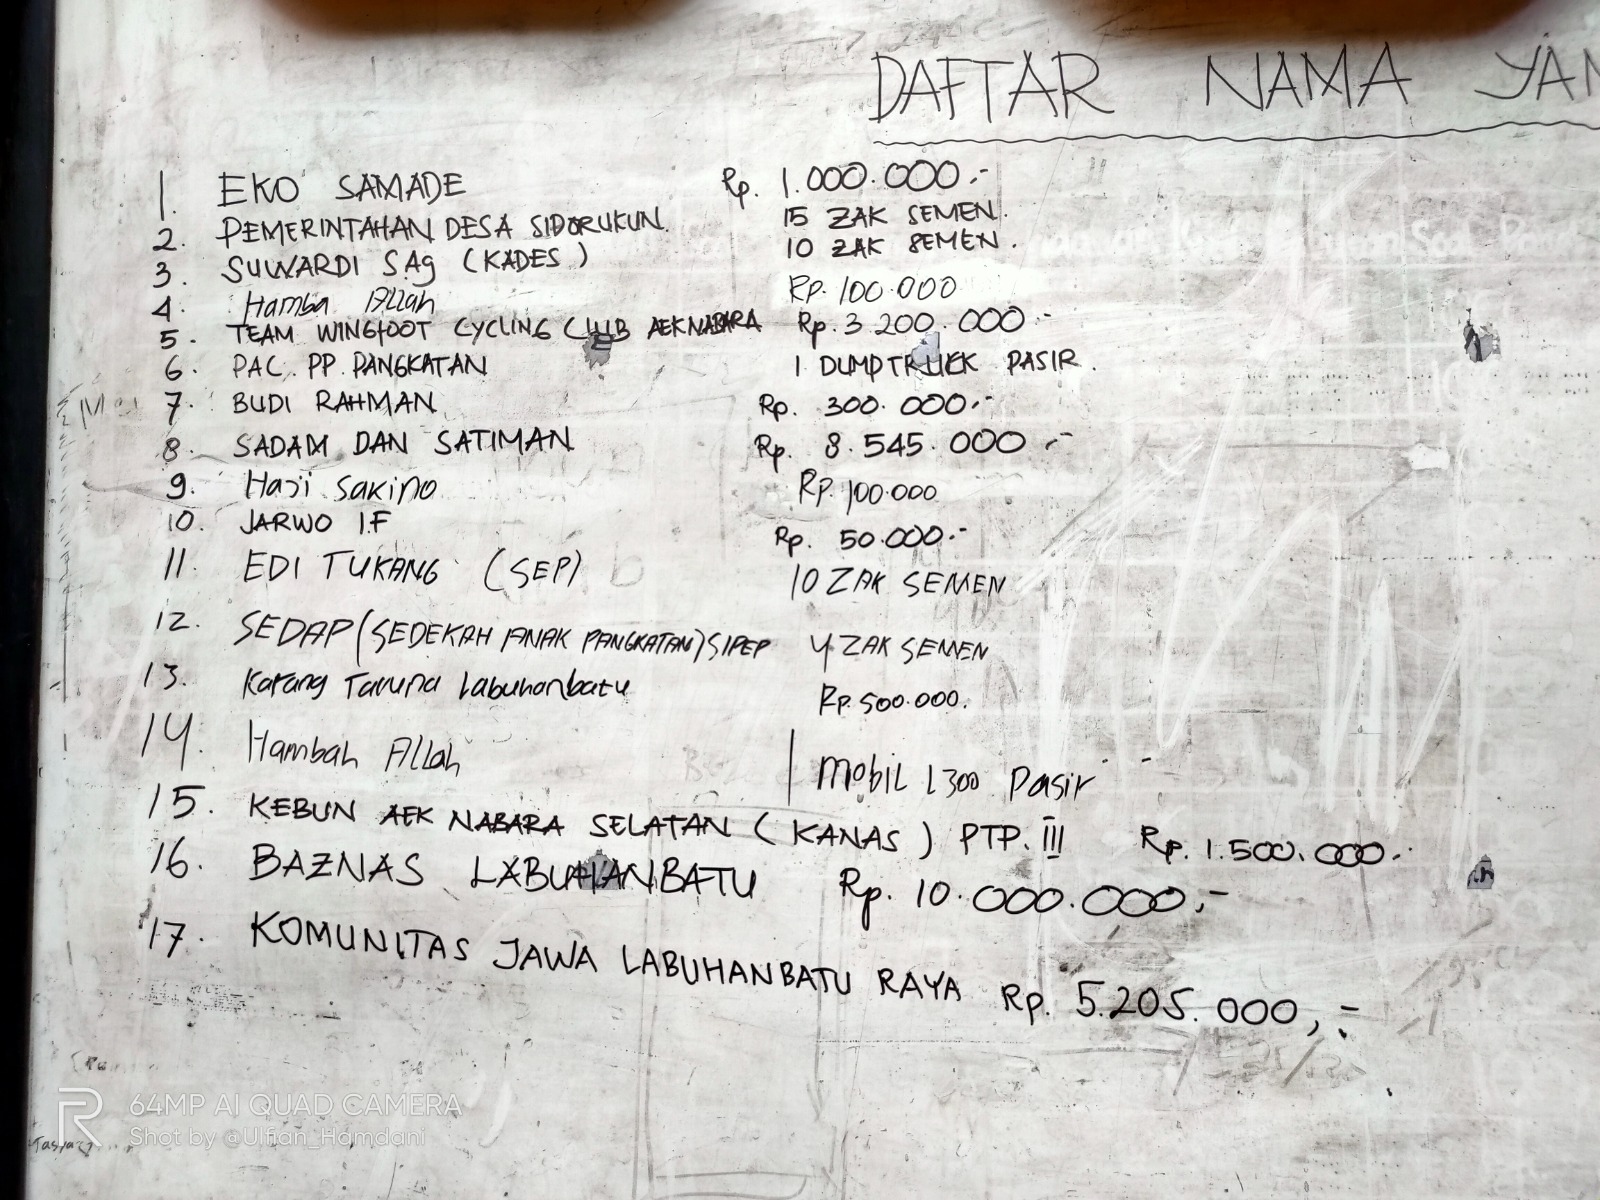 DAFTAR NAMA YAN
1. EKO SAMADE Rp. 1.000.000,-
2. PEMERINTAHAN DESA SIDORUKUN. 15 ZAK SEMEN.
3. SUWARDI SAg (KADES) 10 ZAK SEMEN.
4. Hamba Allah Rp. 100.000
5. TEAM WINGFOOT CYCLING CLUB AEKNABARA Rp. 3.200.000 -
6. PAC. PP. PANGKATAN 1 DUMPTRUCK PASIR.
7. BUDI RAHMAN Rp. 300.000,-
8. SADAM DAN SATIMAN Rp. 8.545.000,-
9. Haji Sakino Rp. 100.000
10. JARWO I.F Rp. 50.000.-
11. EDI TUKANG (SEP) 10 ZAK SEMEN
12. SEDAP (SEDEKAH ANAK PANGKATAN) SIPEP 4 ZAK SEMEN
13. Karang Taruna Labuhanbatu Rp. 500.000.
14. Hambah Allah 1 mobil L300 Pasir
15. KEBUN AEK NABARA SELATAN (KANAS) PTP. III Rp. 1.500.000.-
16. BAZNAS LABUHANBATU Rp. 10.000.000,-
17. KOMUNITAS JAWA LABUHANBATU RAYA Rp. 5.205.000,-
R 64MP AI QUAD CAMERA
Shot by @Ulfian_Hamdani
Tasya